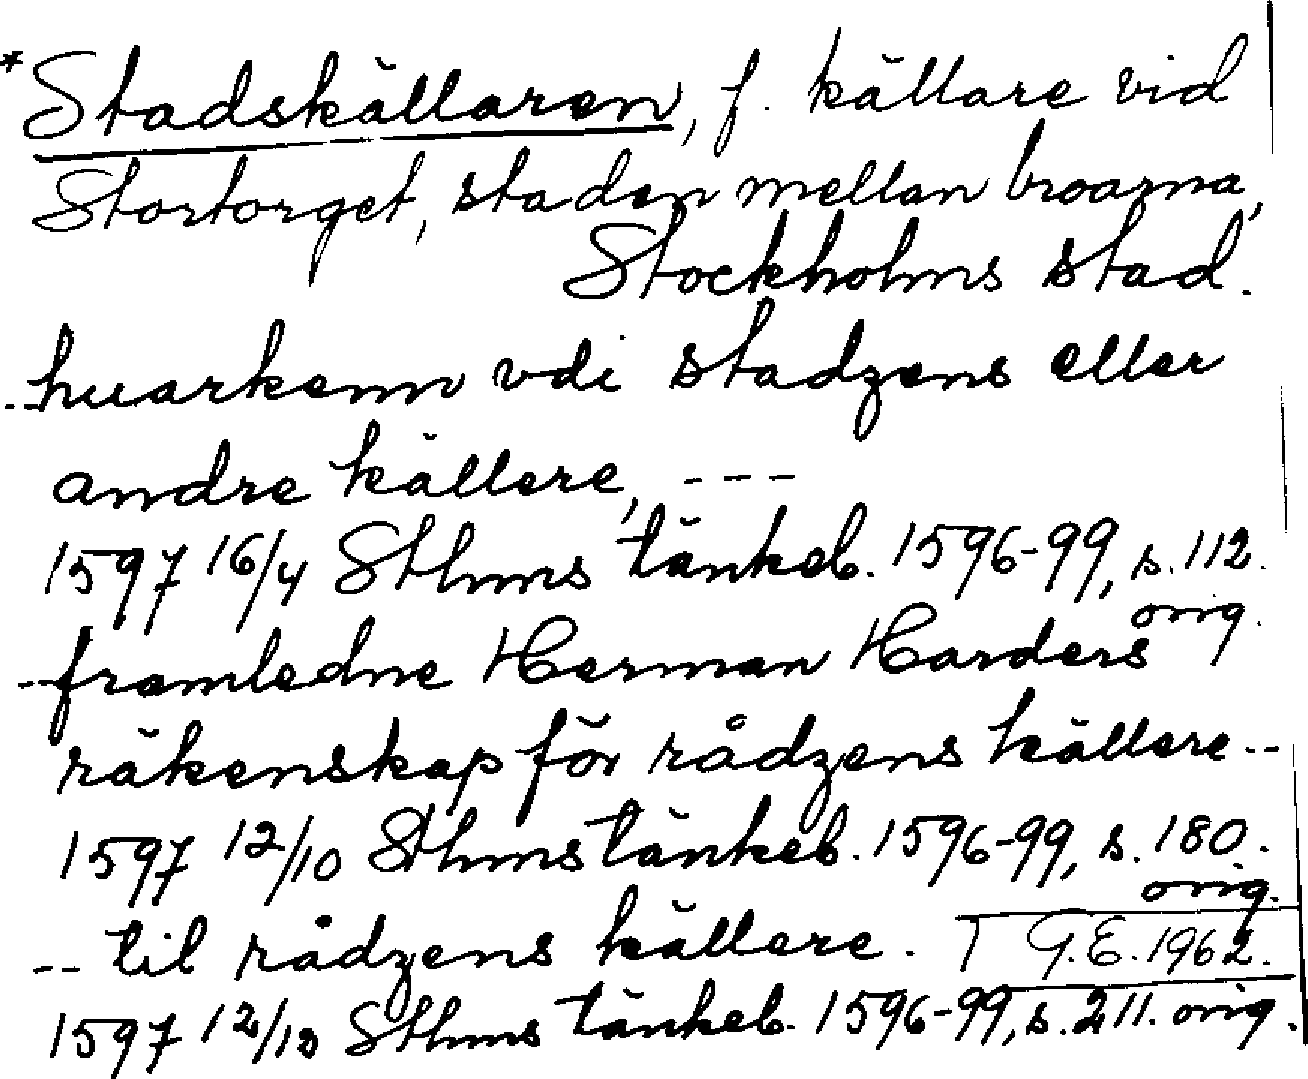 *Stadskällaren, f. källare vid
Stortorget, staden mellan broarna,
Stockholms stad.
--huarkenn vdi stadzens eller
andre källere, ---
1597 16/4 Sthms tänkeb. 1596-99, s. 112.
orig.
--framledne Herman Harders
räkenskap för rådzens källere--
1597 12/10 Sthms tänkeb. 1596-99, s. 180.
orig.
-- til rådzens källere. G.E. 1962.
1597 12/12 Sthms tänkeb. 1596-99, s. 211. orig.